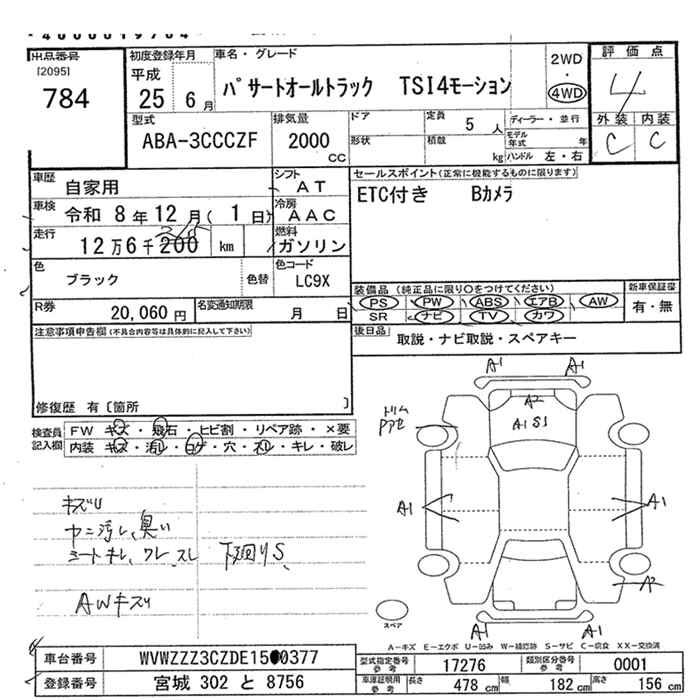 出品番号
[2095]
784
初度登録年月
平成
25 6月
車名・グレード
パサートオールトラック TSI4モーション
2WD
・
4WD
評価点
4
外装 内装
C C
型式
ABA-3CCCZF
排気量
2000
CC
ドア
形状
定員 5 人
積載 kg
ディーラー・並行
モデル年式 年
ハンドル 左・右
車歴 自家用
シフト AT
車検 令和 8年 12月( 1日)
冷房 AAC
走行 12万6千200 km
燃料 ガソリン
色 ブラック 色替
色コード LC9X
R券 20,060円
名変通知期限 月 日
セールスポイント(正常に機能するものに限ります)
ETC付き Bカメラ
装備品(純正品に限り○をつけてください)
PS PW ABS エアB AW
SR ナビ TV カワ
新車保証書
有・無
後日品 取説・ナビ取説・スペアキー
注意事項申告欄(不具合内容等は具体的に記入して下さい)
修復歴 有〔箇所 〕
検査員記入欄
FW キズ・飛石・ヒビ割・リペア跡・×要
内装 キズ・汚れ・コゲ・穴・スレ・キレ・破レ
キズU
ヤニ汚レ、臭い
シートキレ、ワレ、スレ 下廻りS、
AWキズ
A1 A1
A2
A1 S1
A1 A1
A2
A1 A1
スペア
A-キズ E-エクボ U-凹み W-補修跡 S-サビ C-腐食 XX-交換済
車台番号 WVWZZZ3CZDE15 0377
登録番号 宮城 302 と 8756
型式指定番号 参考 17276
類別区分番号 参考 0001
車庫証明用 参考 長さ 478 cm 幅 182 cm 高さ 156 cm